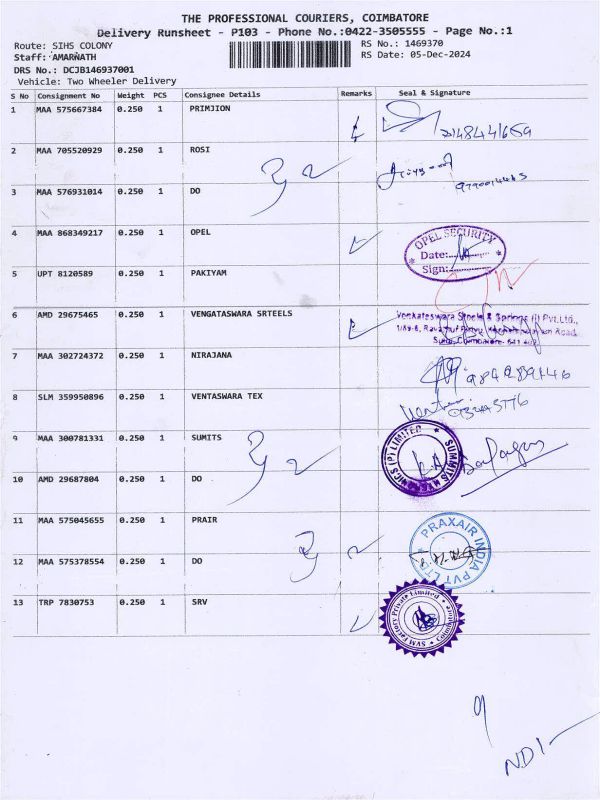 THE PROFESSIONAL COURIERS, COIMBATORE
Delivery Runsheet - P103 - Phone No.:0422-3505555 - Page No.:1
Route: SIHS COLONY RS No.: 1469370
Staff: AMARNATH RS Date: 05-Dec-2024
DRS No.: DCJB146937001
Vehicle: Two Wheeler Delivery
S No Consignment No Weight PCS Consignee Details Remarks Seal & Signature
1 MAA 575667384 0.250 1 PRIMJION
2 MAA 705520929 0.250 1 ROSI
3 MAA 576931014 0.250 1 DO
4 MAA 868349217 0.250 1 OPEL
OPEL SECURITY
Date:
Sign:
5 UPT 8120589 0.250 1 PAKIYAM
6 AMD 29675465 0.250 1 VENGATASWARA SRTEELS
Venkateswara Steels & Springs (I) Pvt.Ltd.,
7 MAA 302724372 0.250 1 NIRAJANA
8 SLM 359950896 0.250 1 VENTASWARA TEX
9 MAA 300781331 0.250 1 SUMITS
10 AMD 29687804 0.250 1 DO
11 MAA 575045655 0.250 1 PRAIR
PRAXAIR INDIA PVT LTD
12 MAA 575378554 0.250 1 DO
13 TRP 7830753 0.250 1 SRV
SVM Factory Private Limited
9
NDI